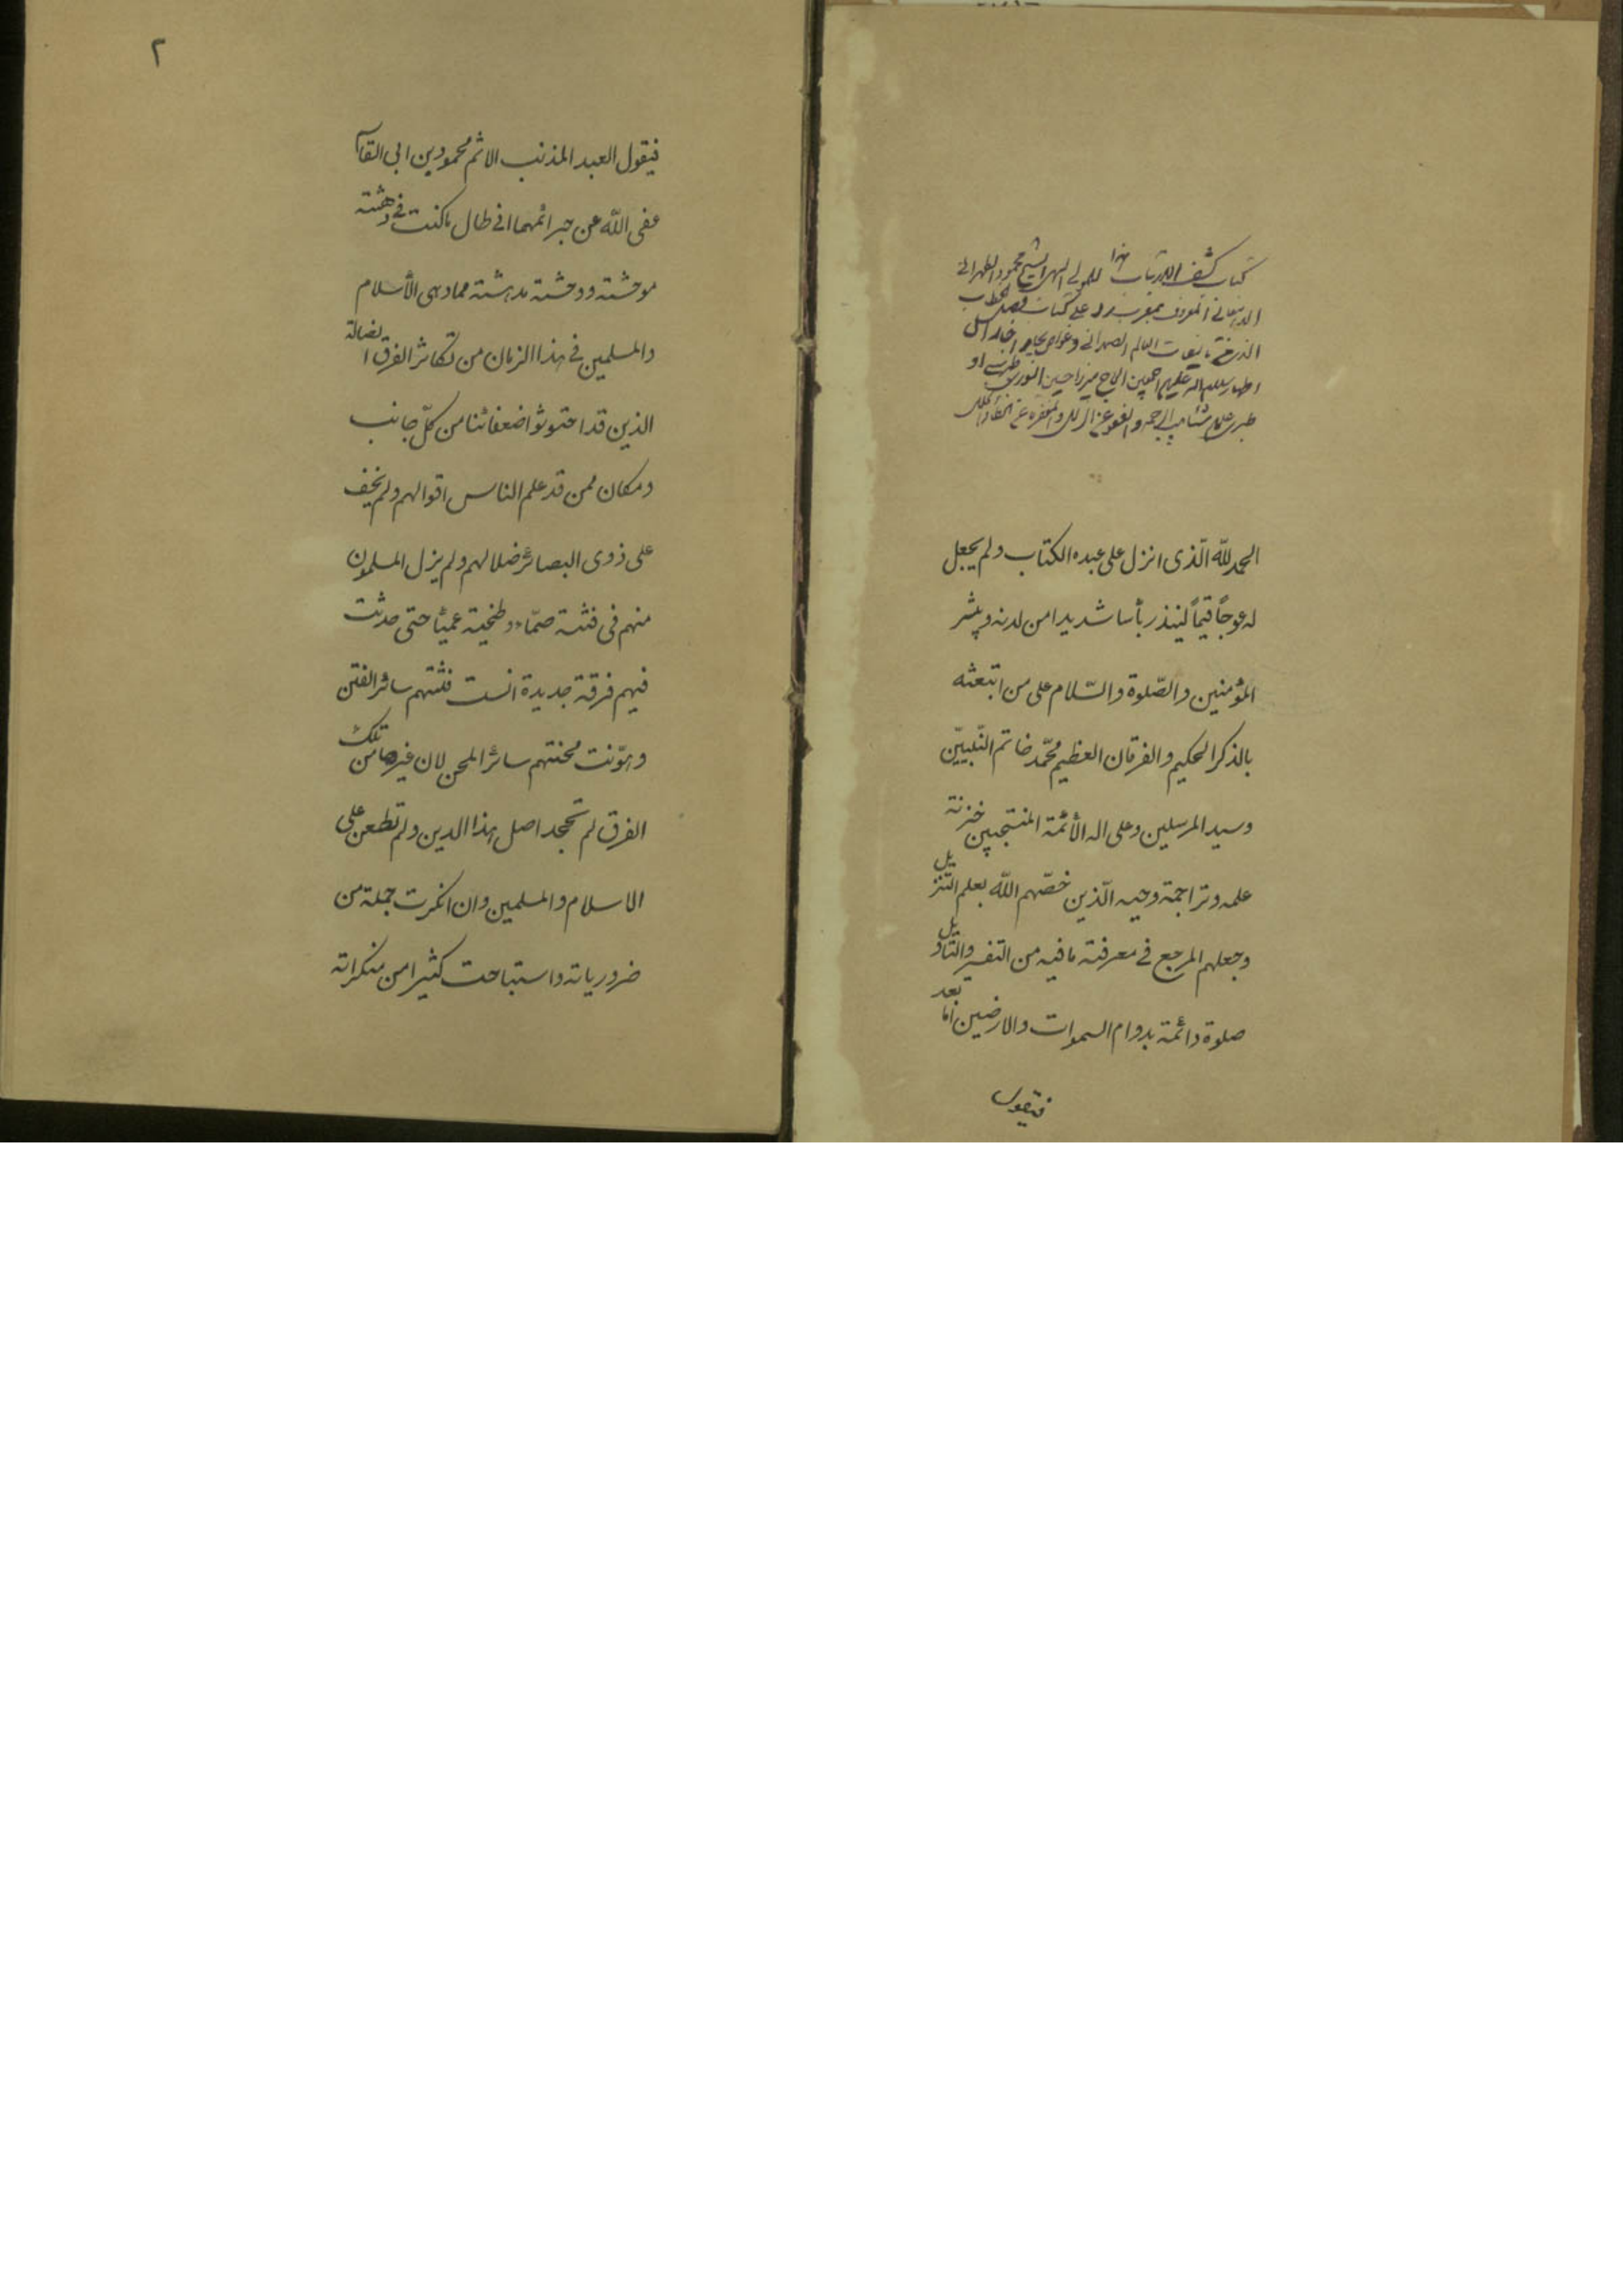 كتاب كشف الارتياب هذا للمولى الشيخ محمود الطهراني
المعروف بمعرب رد على كتاب فصل الخطاب
الذى العالم الصمدانى وغواص بحار اخبار ال
اطهار سلام الله عليهم اجمعين الحاج ميرزا حسين النورى طبرسى او
طبرى
الحمد للّه الّذى انزل على عبده الكتاب ولم يجعل
له عوجًا قيّمًا لينذر بأسا شديدا من لدنه ويبشر
المؤمنين والصّلوة والسّلام على من ابتعثه
بالذكر الحكيم والفرقان العظيم محمّد خاتم النّبيّين
وسيد المرسلين وعلى اله الأئمّة المنتجبين خزنة
علمه وتراجمة وحيه الّذين خصّهم اللّه بعلم التنزيل
وجعلهم المرجع فى معرفة ما فيه من التفسير والتأويل
صلوة دائمة بدوام السموات والارضين اما بعد
فيقول
٢
فيقول العبد المذنب الاثم محمود بن ابى القاسم
عفى اللّه عن جرائمهما انى طال ما كنت فى دهشة
موحشة ووحشة مدهشة مما دهى الأسلام
والمسلمين فى هذا الزمان من تكاثر الفرق الضالة
الذين قد احتوثوا ضعفائنا من كلّ جانب
ومكان ممن قد علم الناس اقوالهم ولم يخف
على ذوى البصائر ضلالهم ولم يزل المسلمون
منهم فى فتنة صمّاء وطخية عمياء حتى حدثت
فيهم فرقة جديدة انست فتنتهم سائر الفتن
وهوّنت محنتهم سائر المحن لان غيرها من تلك
الفرق لم تجحد اصل هذا الدين ولم تطعن على
الاسلام والمسلمين وان انكرت جملة من
ضرورياته واستباحت كثيرا من منكراته